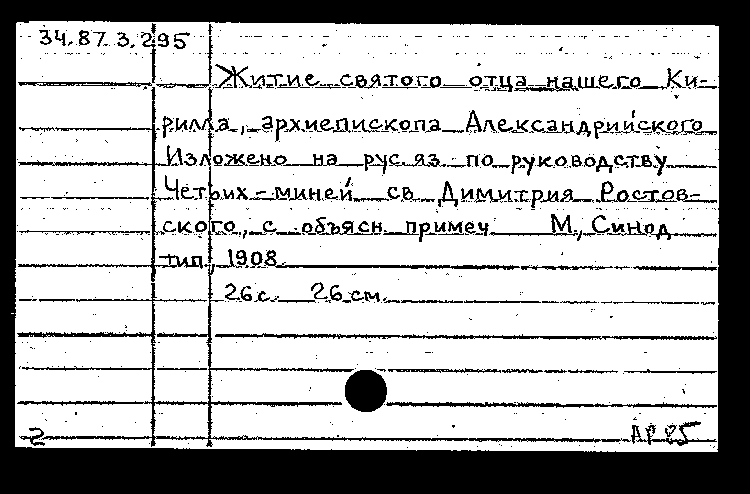 34.87.3.295
Житие святого отца нашего Ки-
рилла, архиепископа Александрийского
Изложено на рус.яз. по руководству
Четьих-миней св Димитрия Ростов-
ского, с объясн примеч М., Синод
тип., 1908.
26с. 26см.
2 АР 85